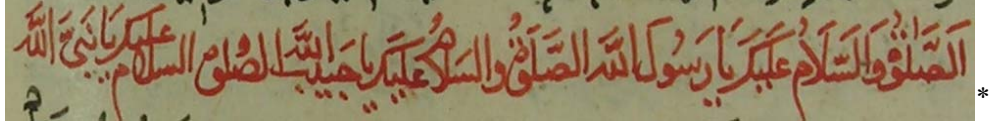 اَلصَّلٰوةُ وَالسَّلَامُ عَلَيْكَ يَا رَسُولَ اللّٰه الصَّلَوةُ والسَّلَامُ عَلَيْكَ يا حَبِيبَ اللّٰه الصلوة السلام عليك يَا نَبِىَّ اللّٰه *